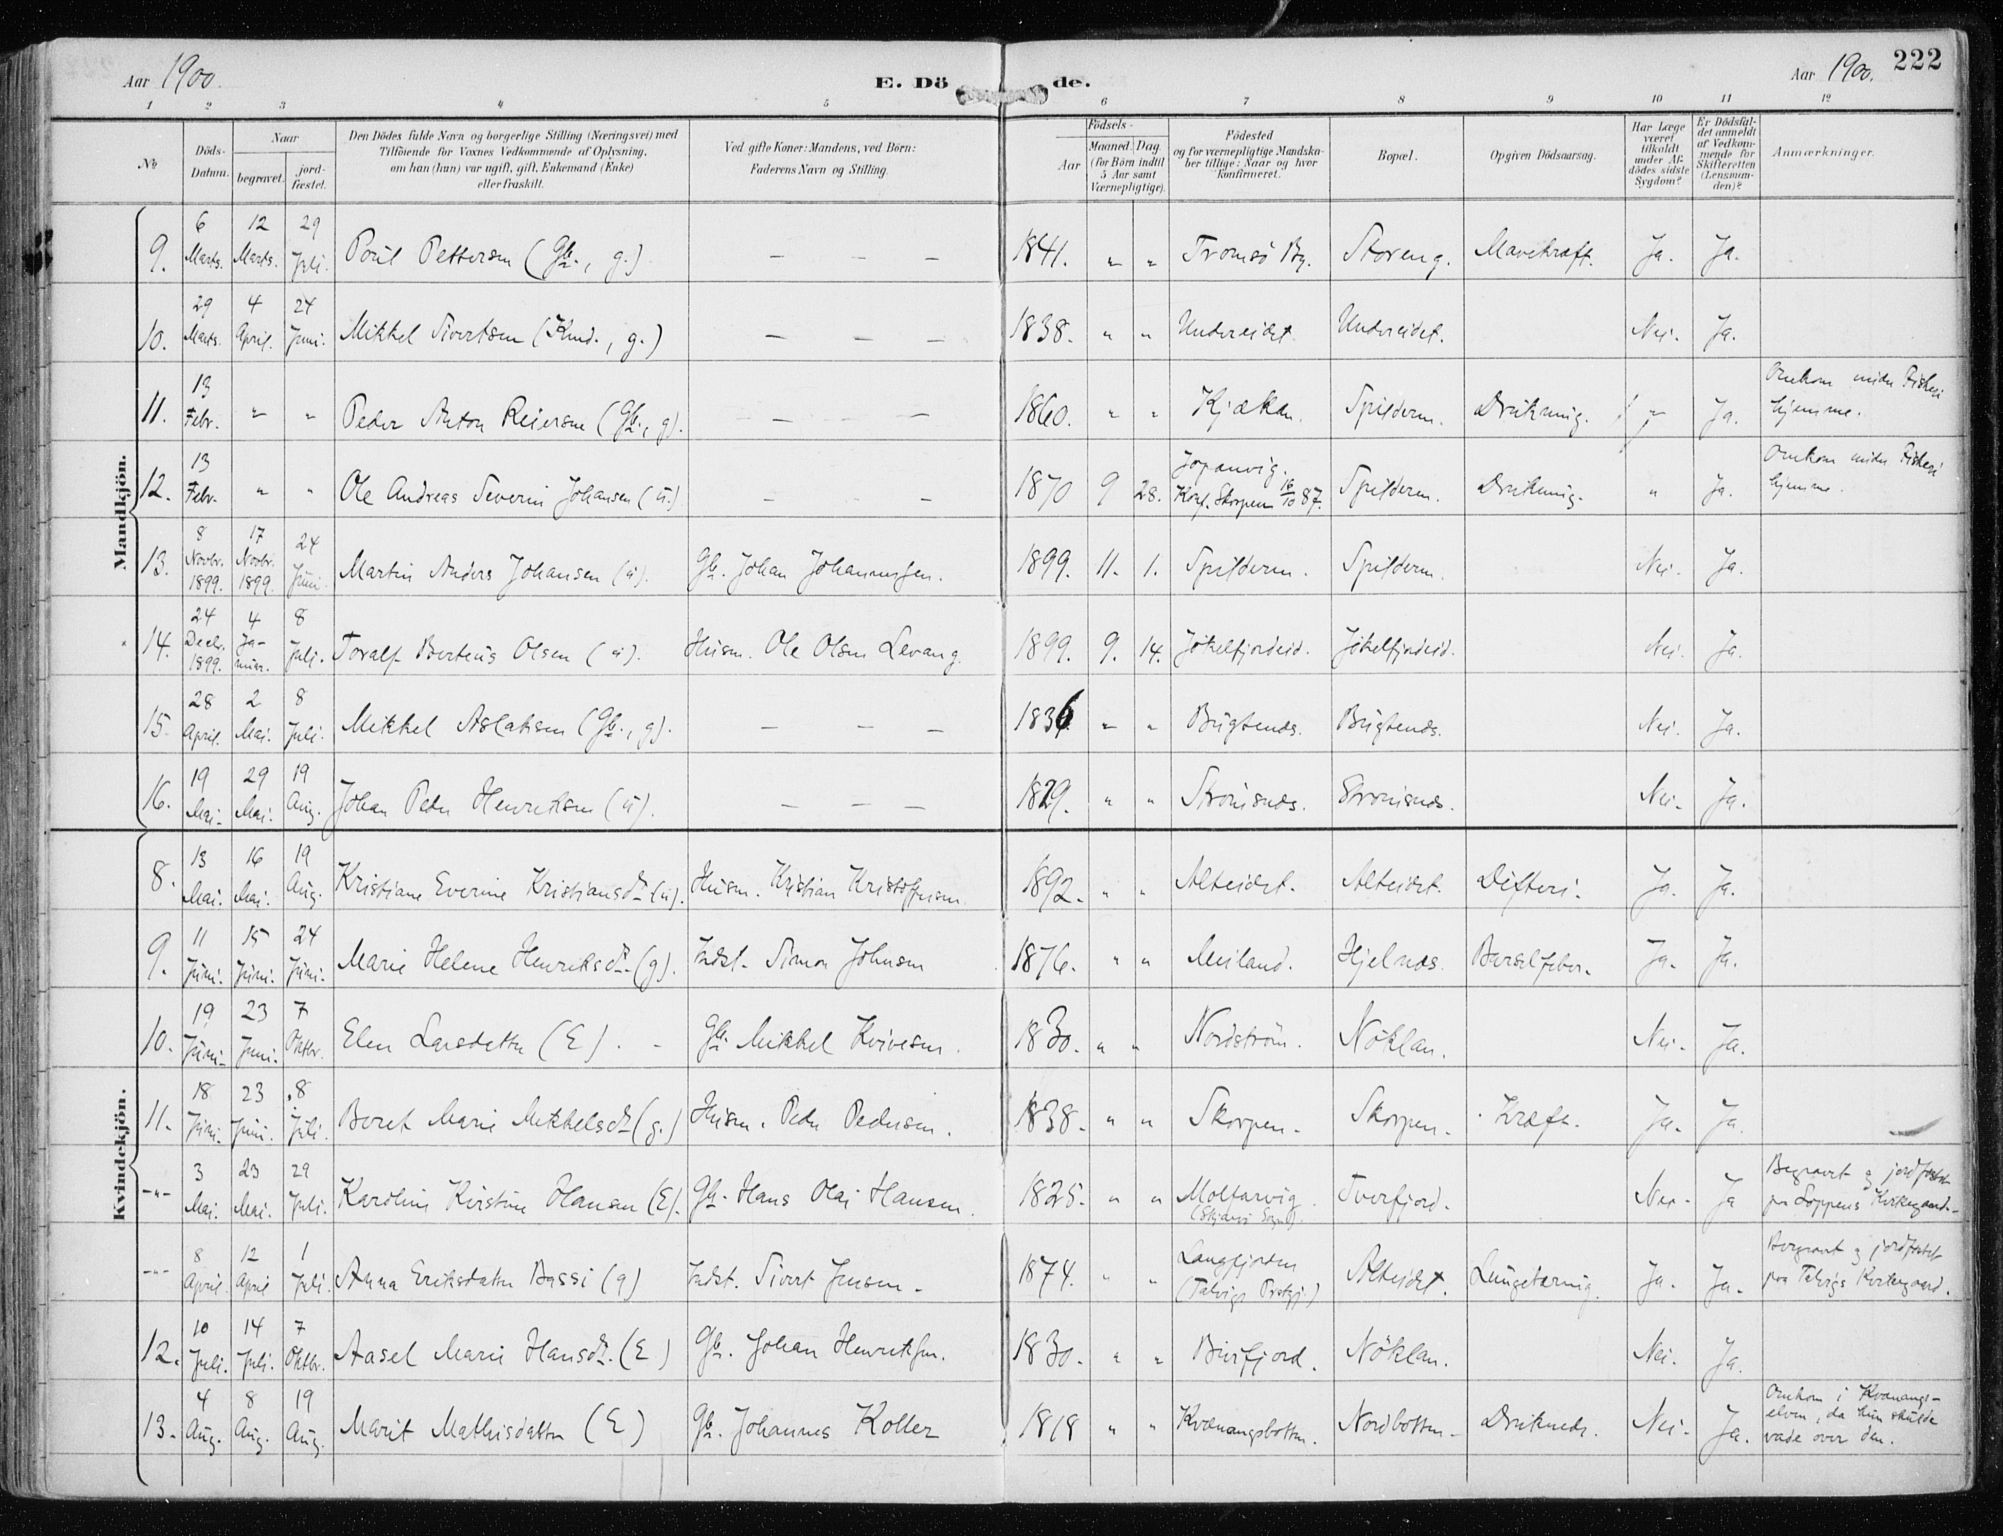 Aar 1900.
E. Döde.
Aar 1900. 222
1 2 3 4 5 6 7 8 9 10 11 12
No
Döds-Datum.
Naar
begravet.
jord-fæstet.
Den Dödes fulde Navn og borgerlige Stilling (Næringsvei) med
Tilföiende for Voxnes Vedkommende af Oplysning,
om han (hun) var ugift, gift, Enkemand (Enke)
eller fraskilt.
Ved gifte Koner: Mandens, ved Börn:
Faderens Navn og Stilling.
Födsels-
Aar
Maaned. Dag
(for Börn indtil
5 Aar samt
Værnepligtige).
Födested
og for værnepligtige Mandska-
ber tillige: Naar og hvor
Konfirmeret.
Bopæl.
Opgiven Dödsaarsag.
Har Læge
været
tilkaldt
under Af-
dödes sidste
Sygdom?
Er Dödsfal-
det anmeldt
af Vedkom-
mende for
Skifteretten
(Lensman-
den)?
Anmærkninger.
Mandkjön.
9. 6 Marts. 12 Marts. 29 Juli. Poul Pettersen (Gb., g.) — — — 1841. " " Tromsö By. Storeng. Mavekræft. Ja. Ja.
10. 29 Marts. 4 April. 24 Juni. Mikkel Sivertsen (Kmd., g.) — — — 1838. " " Undereidet. Undereidet. Nei. Ja.
11. 13 Febr. " " Peder Anton Reiersen (Gb., g). — — 1860. " " Kjækan. Spilderen. Drukning. " Ja. Omkom under Fiskeri
hjemme.
12. 13 Febr. " " Ole Andreas Severin Johansen (u.) — — — 1870 9 28. Jopanvig.
Konf. Skorpen 16/10 87. Spilderen. Drukning. " Ja. Omkom under Fiskeri
hjemme.
13. 8 Novbr. 1899. 17 Novbr. 1899. 24 Juni. Martin Anders Johansen (u). Gb. Johan Johannessen. 1899. 11. 1. Spilderen. Spilderen. Nei. Ja.
14. 24 Decbr. 1899. 4 Januar. 8 Juli. Toralf Berteus Olsen (u). Husm. Ole Olsen Levang. 1899. 9. 14. Jökelfjordeid. Jökelfjordeid. Nei. Ja.
15. 28 April. 2 Mai. 8 Juli. Mikkel Aslaksen (Gb., g). — — — 1836. " " Bugtenæs. Bugtenæs. Nei. Ja.
16. 19 Mai. 29 Mai. 19 Aug. Johan Peder Henriksen (u). — — — 1829. " " Strömsnæs. Strömsnæs. Nei. Ja.
Kvindekjön.
8. 13 Mai. 16 Mai. 19 Aug. Kristiane Everine Kristiansdr (u). Husm. Kristian Kristoffersen. 1892. " " Alteidet. Alteidet. Difteri. Ja. Ja.
9. 11 Juni. 15 Juni. 24 Juni. Marie Helene Henriksdr. (g). Indst. Simon Johnsen 1876. " " Meiland. Hjelnæs. Barselfeber. Ja. Ja.
10. 19 Juni. 23 Juni. 7 Oktbr. Elen Larsdatter (E). Gb. Mikkel Kvivesen. 1830. " " Nordström. Nöklan. Nei. Ja.
11. 18 Juni. 23 Juni. 8 Juli. Beret Marie Mikkelsdr (g.) Husm. Peder Pedersen. 1838. " " Skorpen. Skorpen. Kræft. Ja. Ja.
-"- 3 Mai. 23 Mai. 29 Juli. Karoline Kirstine Hansen (E). Gb. Hans Olai Hansen. 1825. " " Moltarvig
(Skjærvö Sogn). Tverfjord. Nei. Ja Begravet og jordfæstet
paa Loppens Kirkegaard.
-"- 8 April. 12 April 1 Juli. Anna Eriksdatter Bassi (g) Indst. Sivert Jensen. 1874. " " Langfjorden
(Talvigs Prstgj.) Alteidet. Lungetæring. Ja. Ja. Begravet og jordfæstet
paa Talvigs Kirkegaard.
12. 10 Juli. 14 Juli. 7 Oktbr. Aasel Marie Hansdr. (E) Gb. Johan Henriksen. 1830. " " Burfjord. Nöklan. Nei. Ja.
13. 4 Aug. 8 Aug. 19 Aug. Marit Mathisdatter (E) Gb. Johannes Koller 1818 " " Kvænangsbotten. Nordbotten. Druknede. Nei. Ja. Omkom i Kvænangs-
elven, da hun skulde
vade over den.